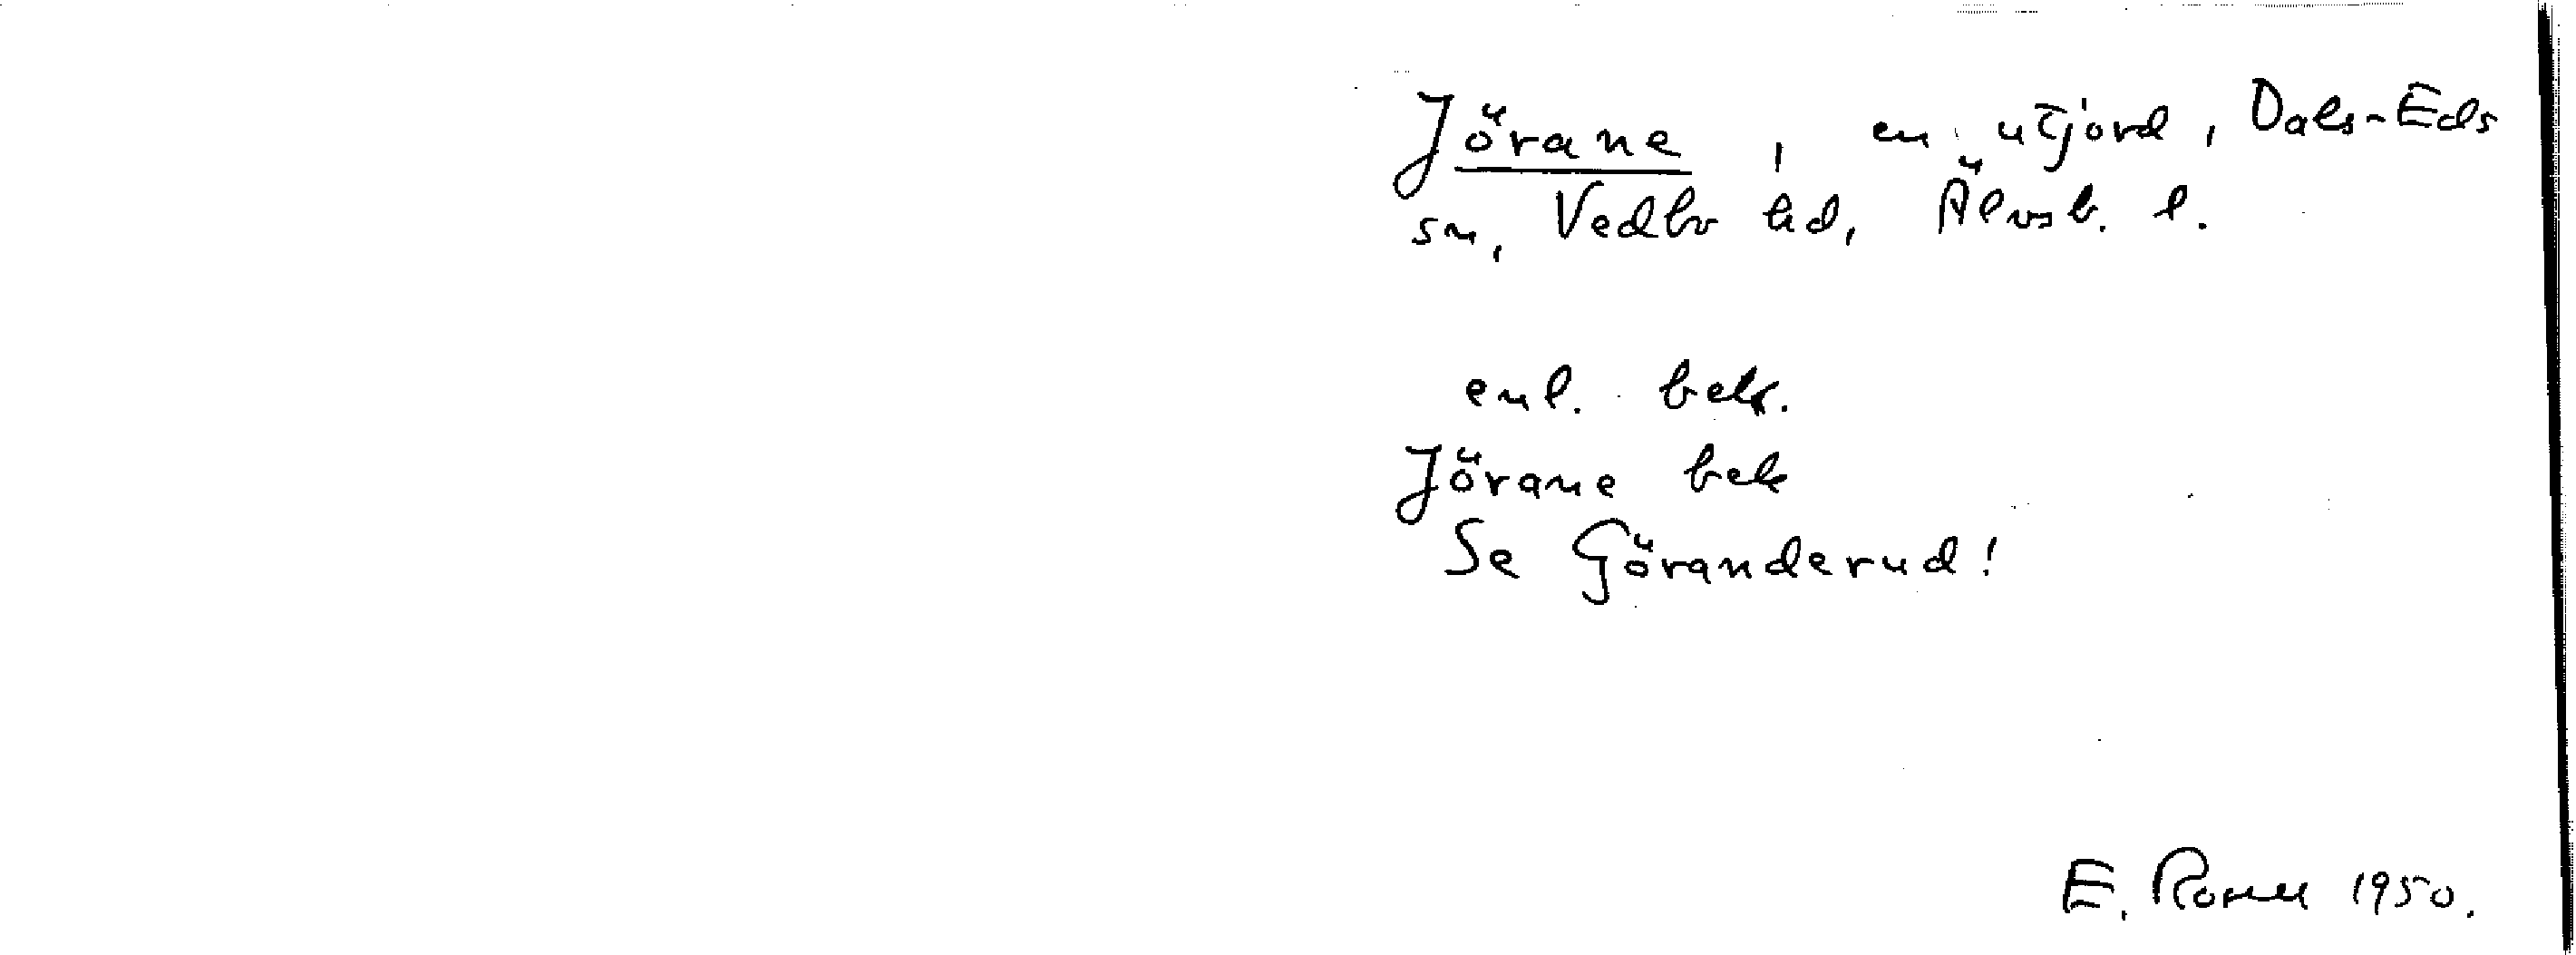 Jörane, en utjord, Dals-Eds
sn, Vedbo hd, Älvsb. l.
enl. bek.
Jörane bek
Se Göranderud!
E. 1950.